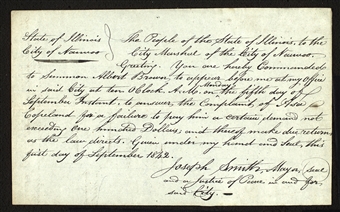 State of Illinois
City of Nauvoo
The People of the State of Illinois, to the
City Marshal of the City of Nauvoo
Greeting. You are hereby Commanded
to Summon Albert Brown to appear before me at my office
in said City at ten O'Clock A.M. on Monday the fifth day of
September Instant, to answer the Complaint, of Asa
Copeland for a failure to pay him a certain demand not
exceeding One hundred Dollars, and thereof make due return
as the law directs. Given under my hand and seal, this
first day of September 1842.
Joseph Smith, Mayor, seal
and a Justice of Peace in and for
said City.